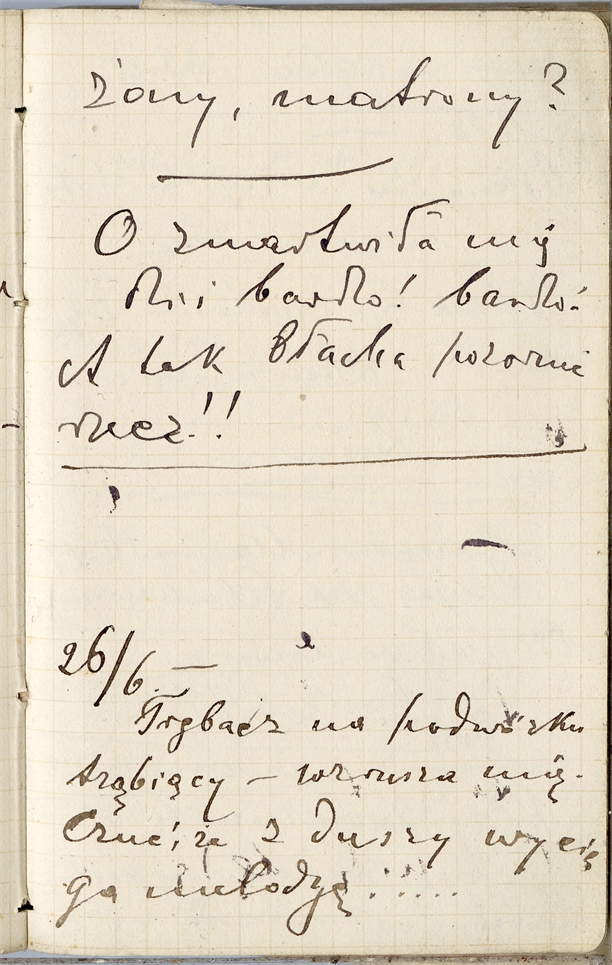 żony, matrony?
O zmartwiła mię
dziś bardzo! bardzo!
A tak błacha pozornie
rzecz!!
26/6 —
Trębacz na podwórzku
trąbiący — wzrusza mię.
Czuć, że z duszy wycią
ga melodyę......